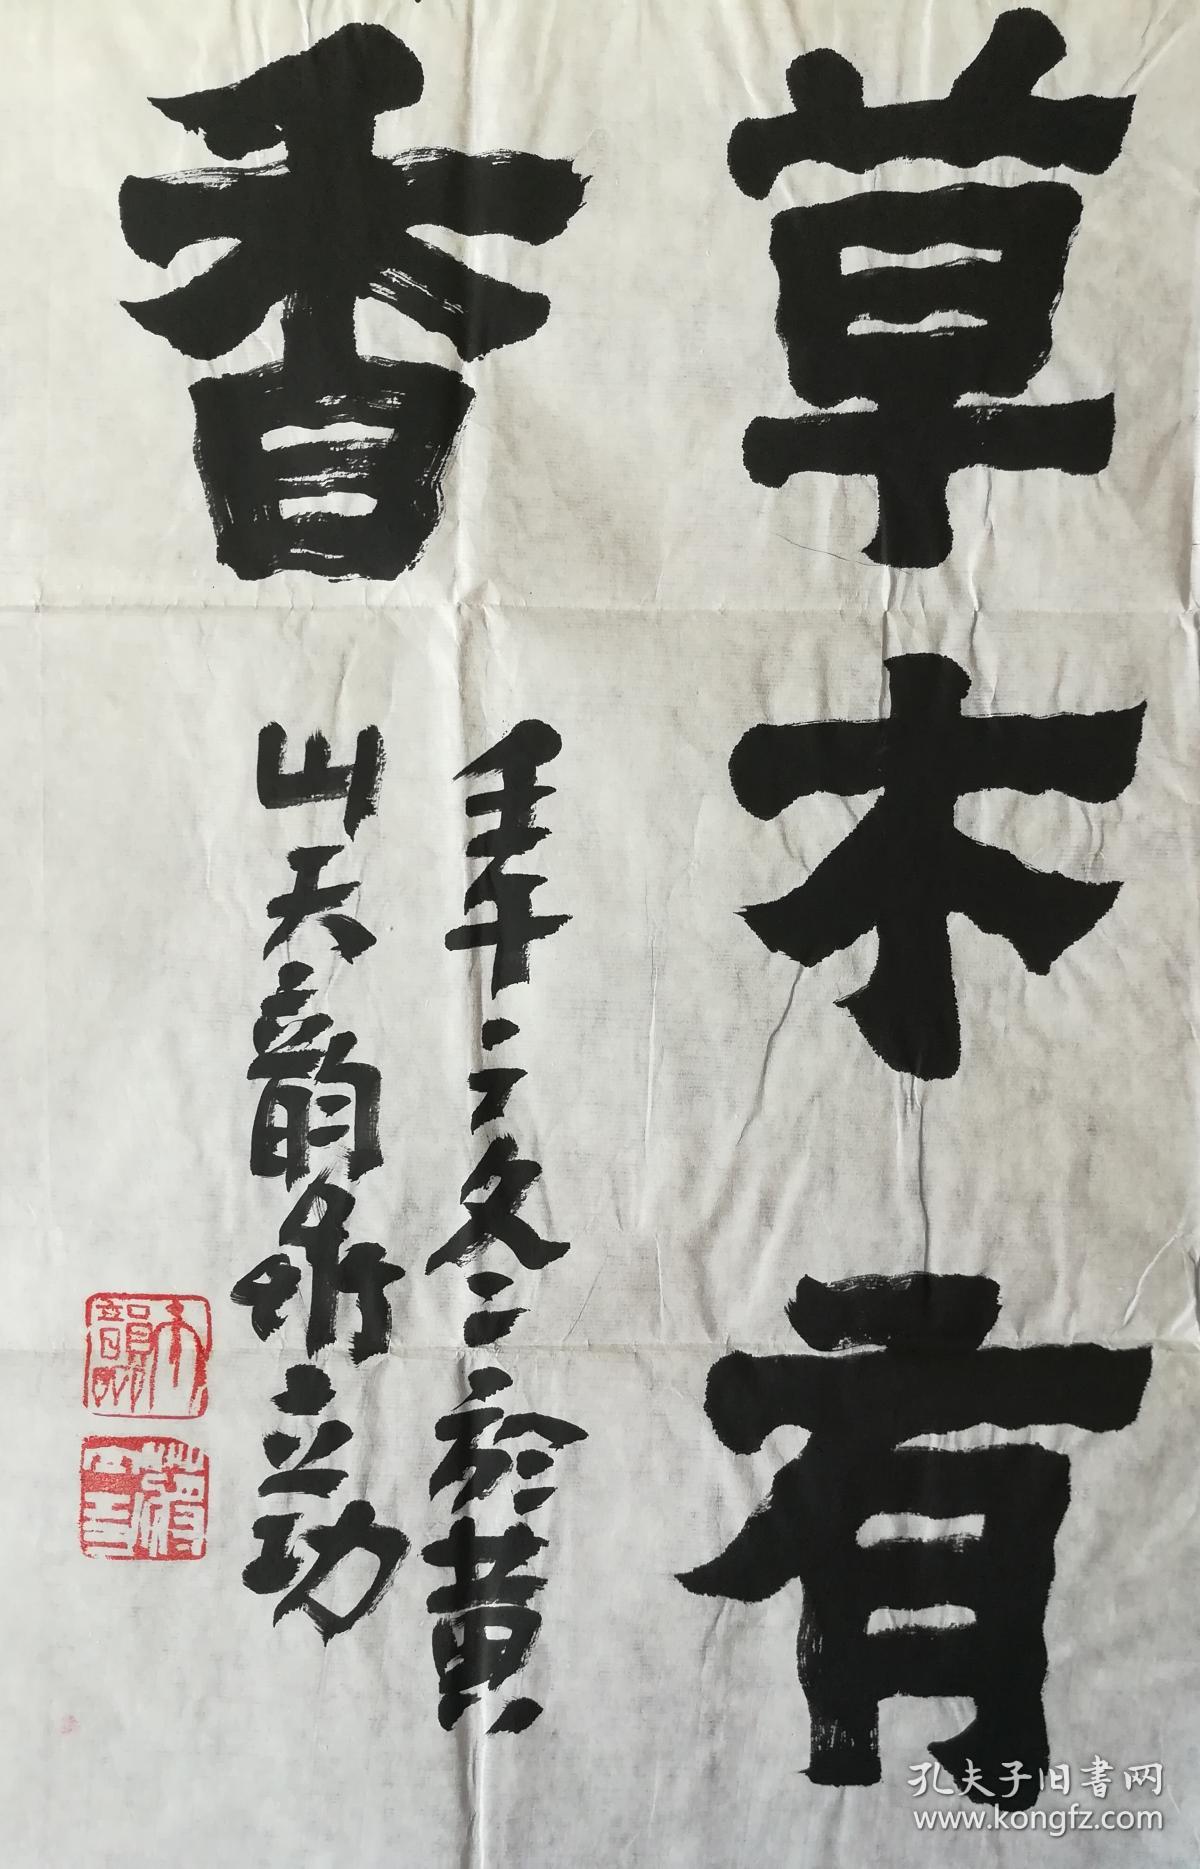 草木有
香
壬午之冬於黄
山天韵立功
天韻
孔夫子旧書网
www.kongfz.com